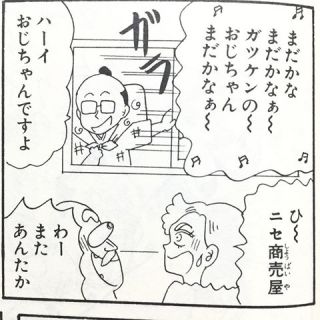 まだかな
まだかなぁ〜
ガツケンの〜
おじちゃん
まだかなぁ〜
ガラ
ハーイ
おじちゃんですよ
ひ〜
ニセ商売屋
しょうばいや
わー
また
あんたか